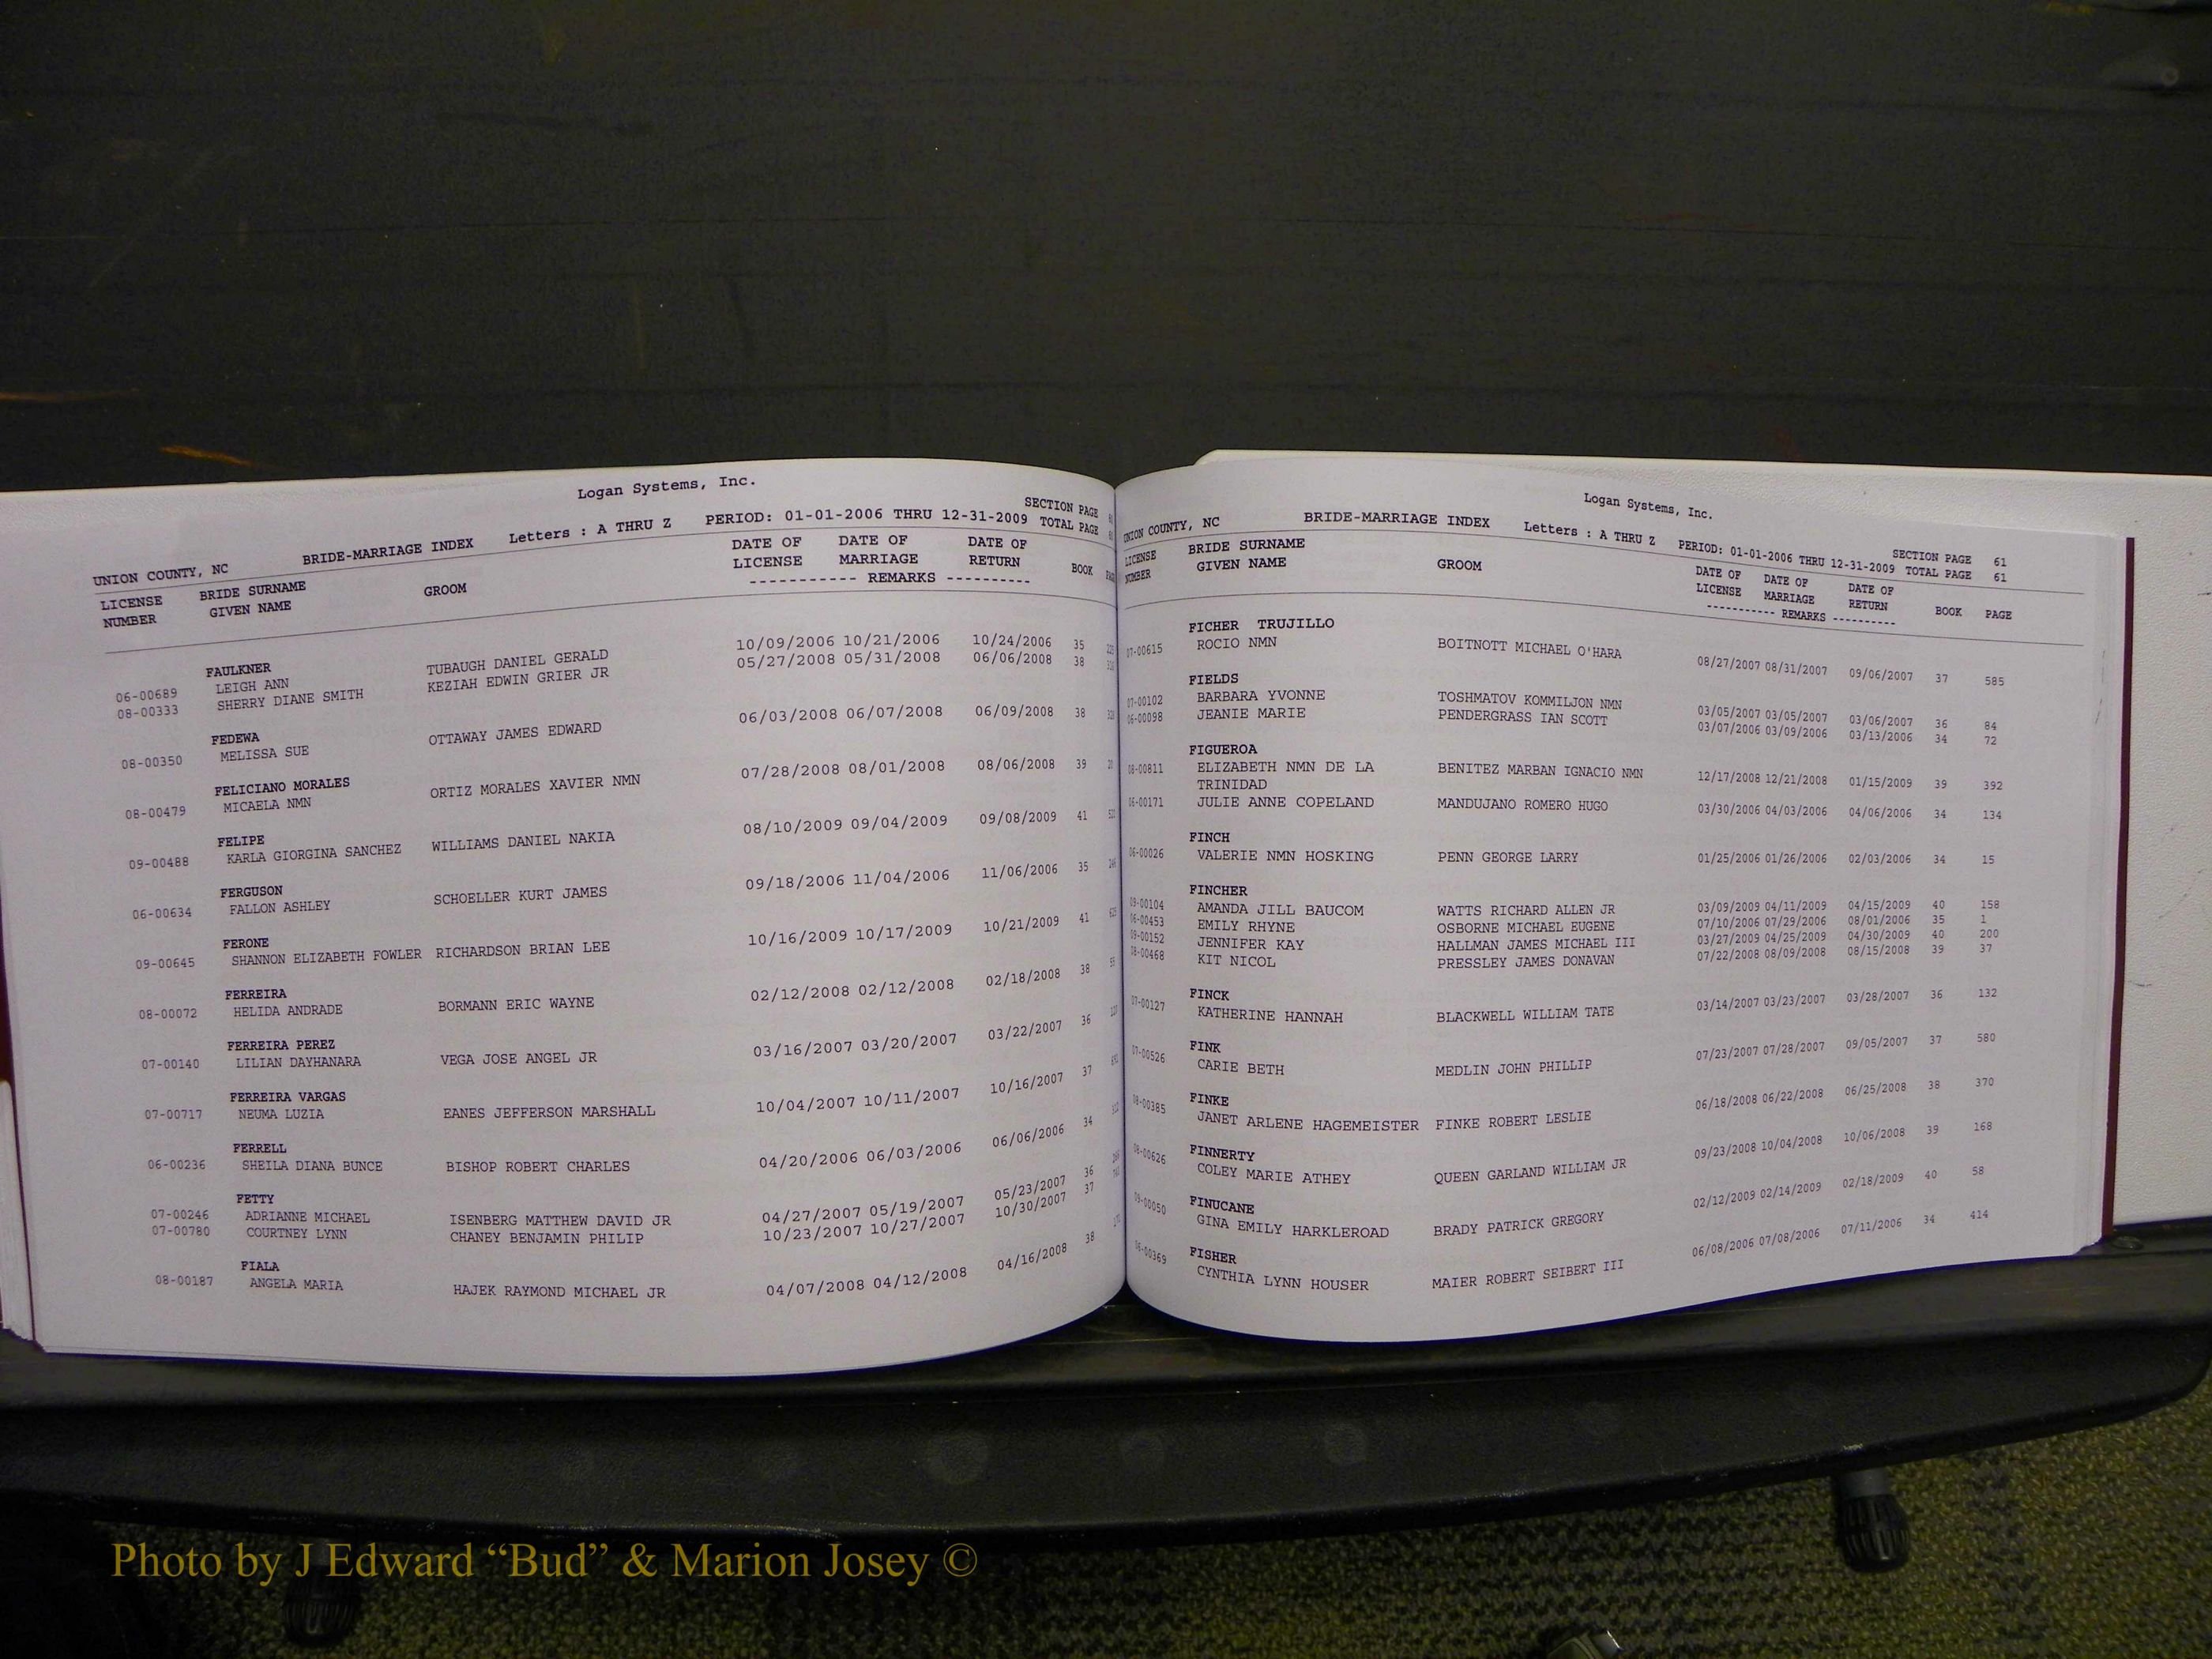 Logan Systems, Inc.
UNION COUNTY, NC BRIDE-MARRIAGE INDEX Letters : A THRU Z PERIOD: 01-01-2006 THRU 12-31-2009 SECTION PAGE
TOTAL PAGE
LICENSE NUMBER BRIDE SURNAME GIVEN NAME GROOM DATE OF LICENSE DATE OF MARRIAGE DATE OF RETURN BOOK
----------- REMARKS ----------
FAULKNER
06-00689 LEIGH ANN TUBAUGH DANIEL GERALD 10/09/2006 10/21/2006 10/24/2006 35
08-00333 SHERRY DIANE SMITH KEZIAH EDWIN GRIER JR 05/27/2008 05/31/2008 06/06/2008 38
FEDEWA
08-00350 MELISSA SUE OTTAWAY JAMES EDWARD 06/03/2008 06/07/2008 06/09/2008 38
FELICIANO MORALES
08-00479 MICAELA NMN ORTIZ MORALES XAVIER NMN 07/28/2008 08/01/2008 08/06/2008 39
FELIPE
09-00488 KARLA GIORGINA SANCHEZ WILLIAMS DANIEL NAKIA 08/10/2009 09/04/2009 09/08/2009 41
FERGUSON
06-00634 FALLON ASHLEY SCHOELLER KURT JAMES 09/18/2006 11/04/2006 11/06/2006 35
FERONE
09-00645 SHANNON ELIZABETH FOWLER RICHARDSON BRIAN LEE 10/16/2009 10/17/2009 10/21/2009 41
FERREIRA
08-00072 HELIDA ANDRADE BORMANN ERIC WAYNE 02/12/2008 02/12/2008 02/18/2008 38
FERREIRA PEREZ
07-00140 LILIAN DAYHANARA VEGA JOSE ANGEL JR 03/16/2007 03/20/2007 03/22/2007 36
FERREIRA VARGAS
07-00717 NEUMA LUZIA EANES JEFFERSON MARSHALL 10/04/2007 10/11/2007 10/16/2007 37
FERRELL
06-00236 SHEILA DIANA BUNCE BISHOP ROBERT CHARLES 04/20/2006 06/03/2006 06/06/2006 34
FETTY
07-00246 ADRIANNE MICHAEL ISENBERG MATTHEW DAVID JR 04/27/2007 05/19/2007 05/23/2007 36
07-00780 COURTNEY LYNN CHANEY BENJAMIN PHILIP 10/23/2007 10/27/2007 10/30/2007 37
FIALA
08-00187 ANGELA MARIA HAJEK RAYMOND MICHAEL JR 04/07/2008 04/12/2008 04/16/2008 38
Logan Systems, Inc.
UNION COUNTY, NC BRIDE-MARRIAGE INDEX Letters : A THRU Z PERIOD: 01-01-2006 THRU 12-31-2009 SECTION PAGE 61
TOTAL PAGE 61
LICENSE NUMBER BRIDE SURNAME GIVEN NAME GROOM DATE OF LICENSE DATE OF MARRIAGE DATE OF RETURN BOOK PAGE
----------- REMARKS ----------
FICHER TRUJILLO
07-00615 ROCIO NMN BOITNOTT MICHAEL O'HARA 08/27/2007 08/31/2007 09/06/2007 37 585
FIELDS
07-00102 BARBARA YVONNE TOSHMATOV KOMMILJON NMN 03/05/2007 03/05/2007 03/06/2007 36 84
06-00098 JEANIE MARIE PENDERGRASS IAN SCOTT 03/07/2006 03/09/2006 03/13/2006 34 72
FIGUEROA
08-00811 ELIZABETH NMN DE LA BENITEZ MARBAN IGNACIO NMN 12/17/2008 12/21/2008 01/15/2009 39 392
TRINIDAD
06-00171 JULIE ANNE COPELAND MANDUJANO ROMERO HUGO 03/30/2006 04/03/2006 04/06/2006 34 134
FINCH
06-00026 VALERIE NMN HOSKING PENN GEORGE LARRY 01/25/2006 01/26/2006 02/03/2006 34 15
FINCHER
09-00104 AMANDA JILL BAUCOM WATTS RICHARD ALLEN JR 03/09/2009 04/11/2009 04/15/2009 40 158
06-00453 EMILY RHYNE OSBORNE MICHAEL EUGENE 07/10/2006 07/29/2006 08/01/2006 35 1
09-00152 JENNIFER KAY HALLMAN JAMES MICHAEL III 03/27/2009 04/25/2009 04/30/2009 40 200
08-00468 KIT NICOL PRESSLEY JAMES DONAVAN 07/22/2008 08/09/2008 08/15/2008 39 37
FINCK
07-00127 KATHERINE HANNAH BLACKWELL WILLIAM TATE 03/14/2007 03/23/2007 03/28/2007 36 132
FINK
07-00526 CARIE BETH MEDLIN JOHN PHILLIP 07/23/2007 07/28/2007 09/05/2007 37 580
FINKE
08-00385 JANET ARLENE HAGEMEISTER FINKE ROBERT LESLIE 06/18/2008 06/22/2008 06/25/2008 38 370
FINNERTY
08-00626 COLEY MARIE ATHEY QUEEN GARLAND WILLIAM JR 09/23/2008 10/04/2008 10/06/2008 39 168
FINUCANE
09-00050 GINA EMILY HARKLEROAD BRADY PATRICK GREGORY 02/12/2009 02/14/2009 02/18/2009 40 58
FISHER
06-00369 CYNTHIA LYNN HOUSER MAIER ROBERT SEIBERT III 06/08/2006 07/08/2006 07/11/2006 34 414
Photo by J Edward “Bud” & Marion Josey ©